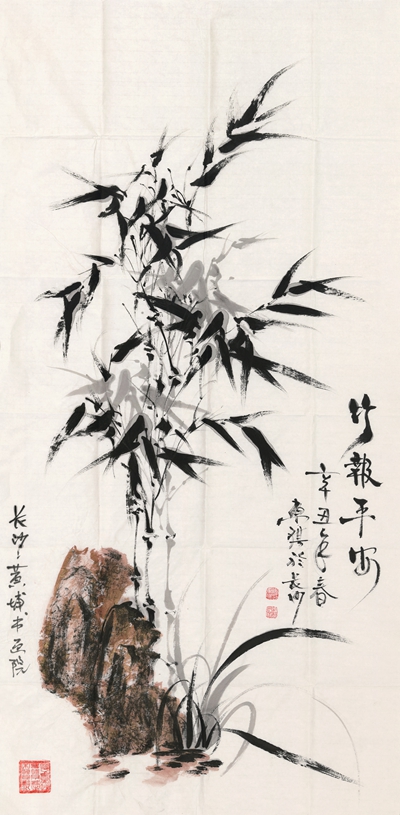 竹報平安
辛丑年春
東騏於長沙
长沙黄埔书画院